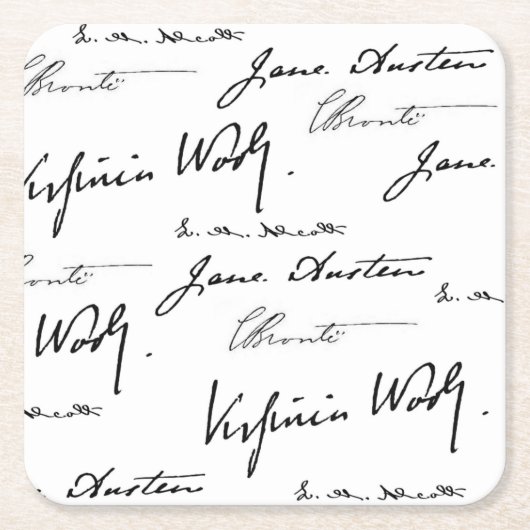 L. M. Alcott
Jane Austen
CBrontë
CBrontë
Virginia Woolf.
Jane.
L. M. Alcott
Jane Austen
ontë
L. M
CBrontë
Woolf.
Virginia Woolf.
Alcott
Austen
L. M. Alcott